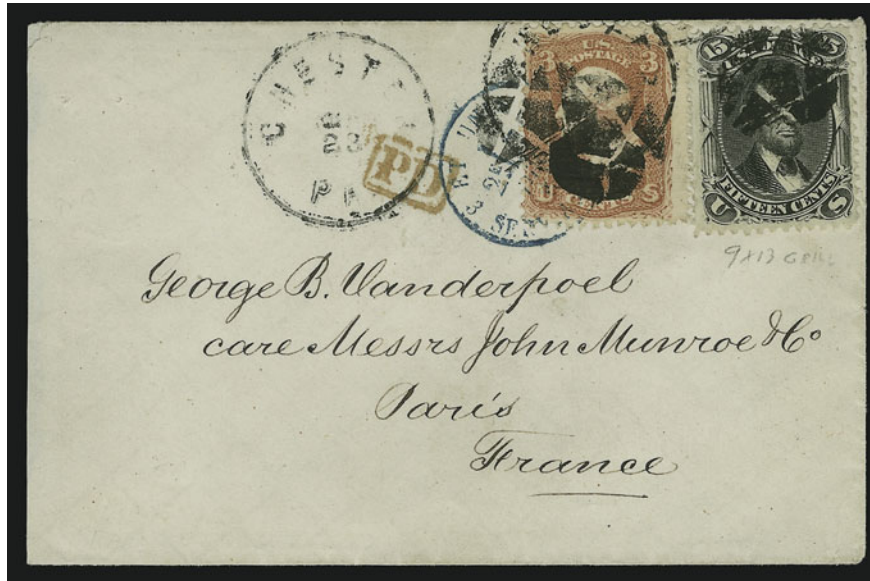 CHESTE
23
PA
PD
25
3 SER
3 3
U.S.
POSTAGE
U CENTS S
15 5
FIFTEEN CENTS
U S
9x13 Grill
George B. Vanderpoel
care Messrs John Munroe & Co
Paris
France